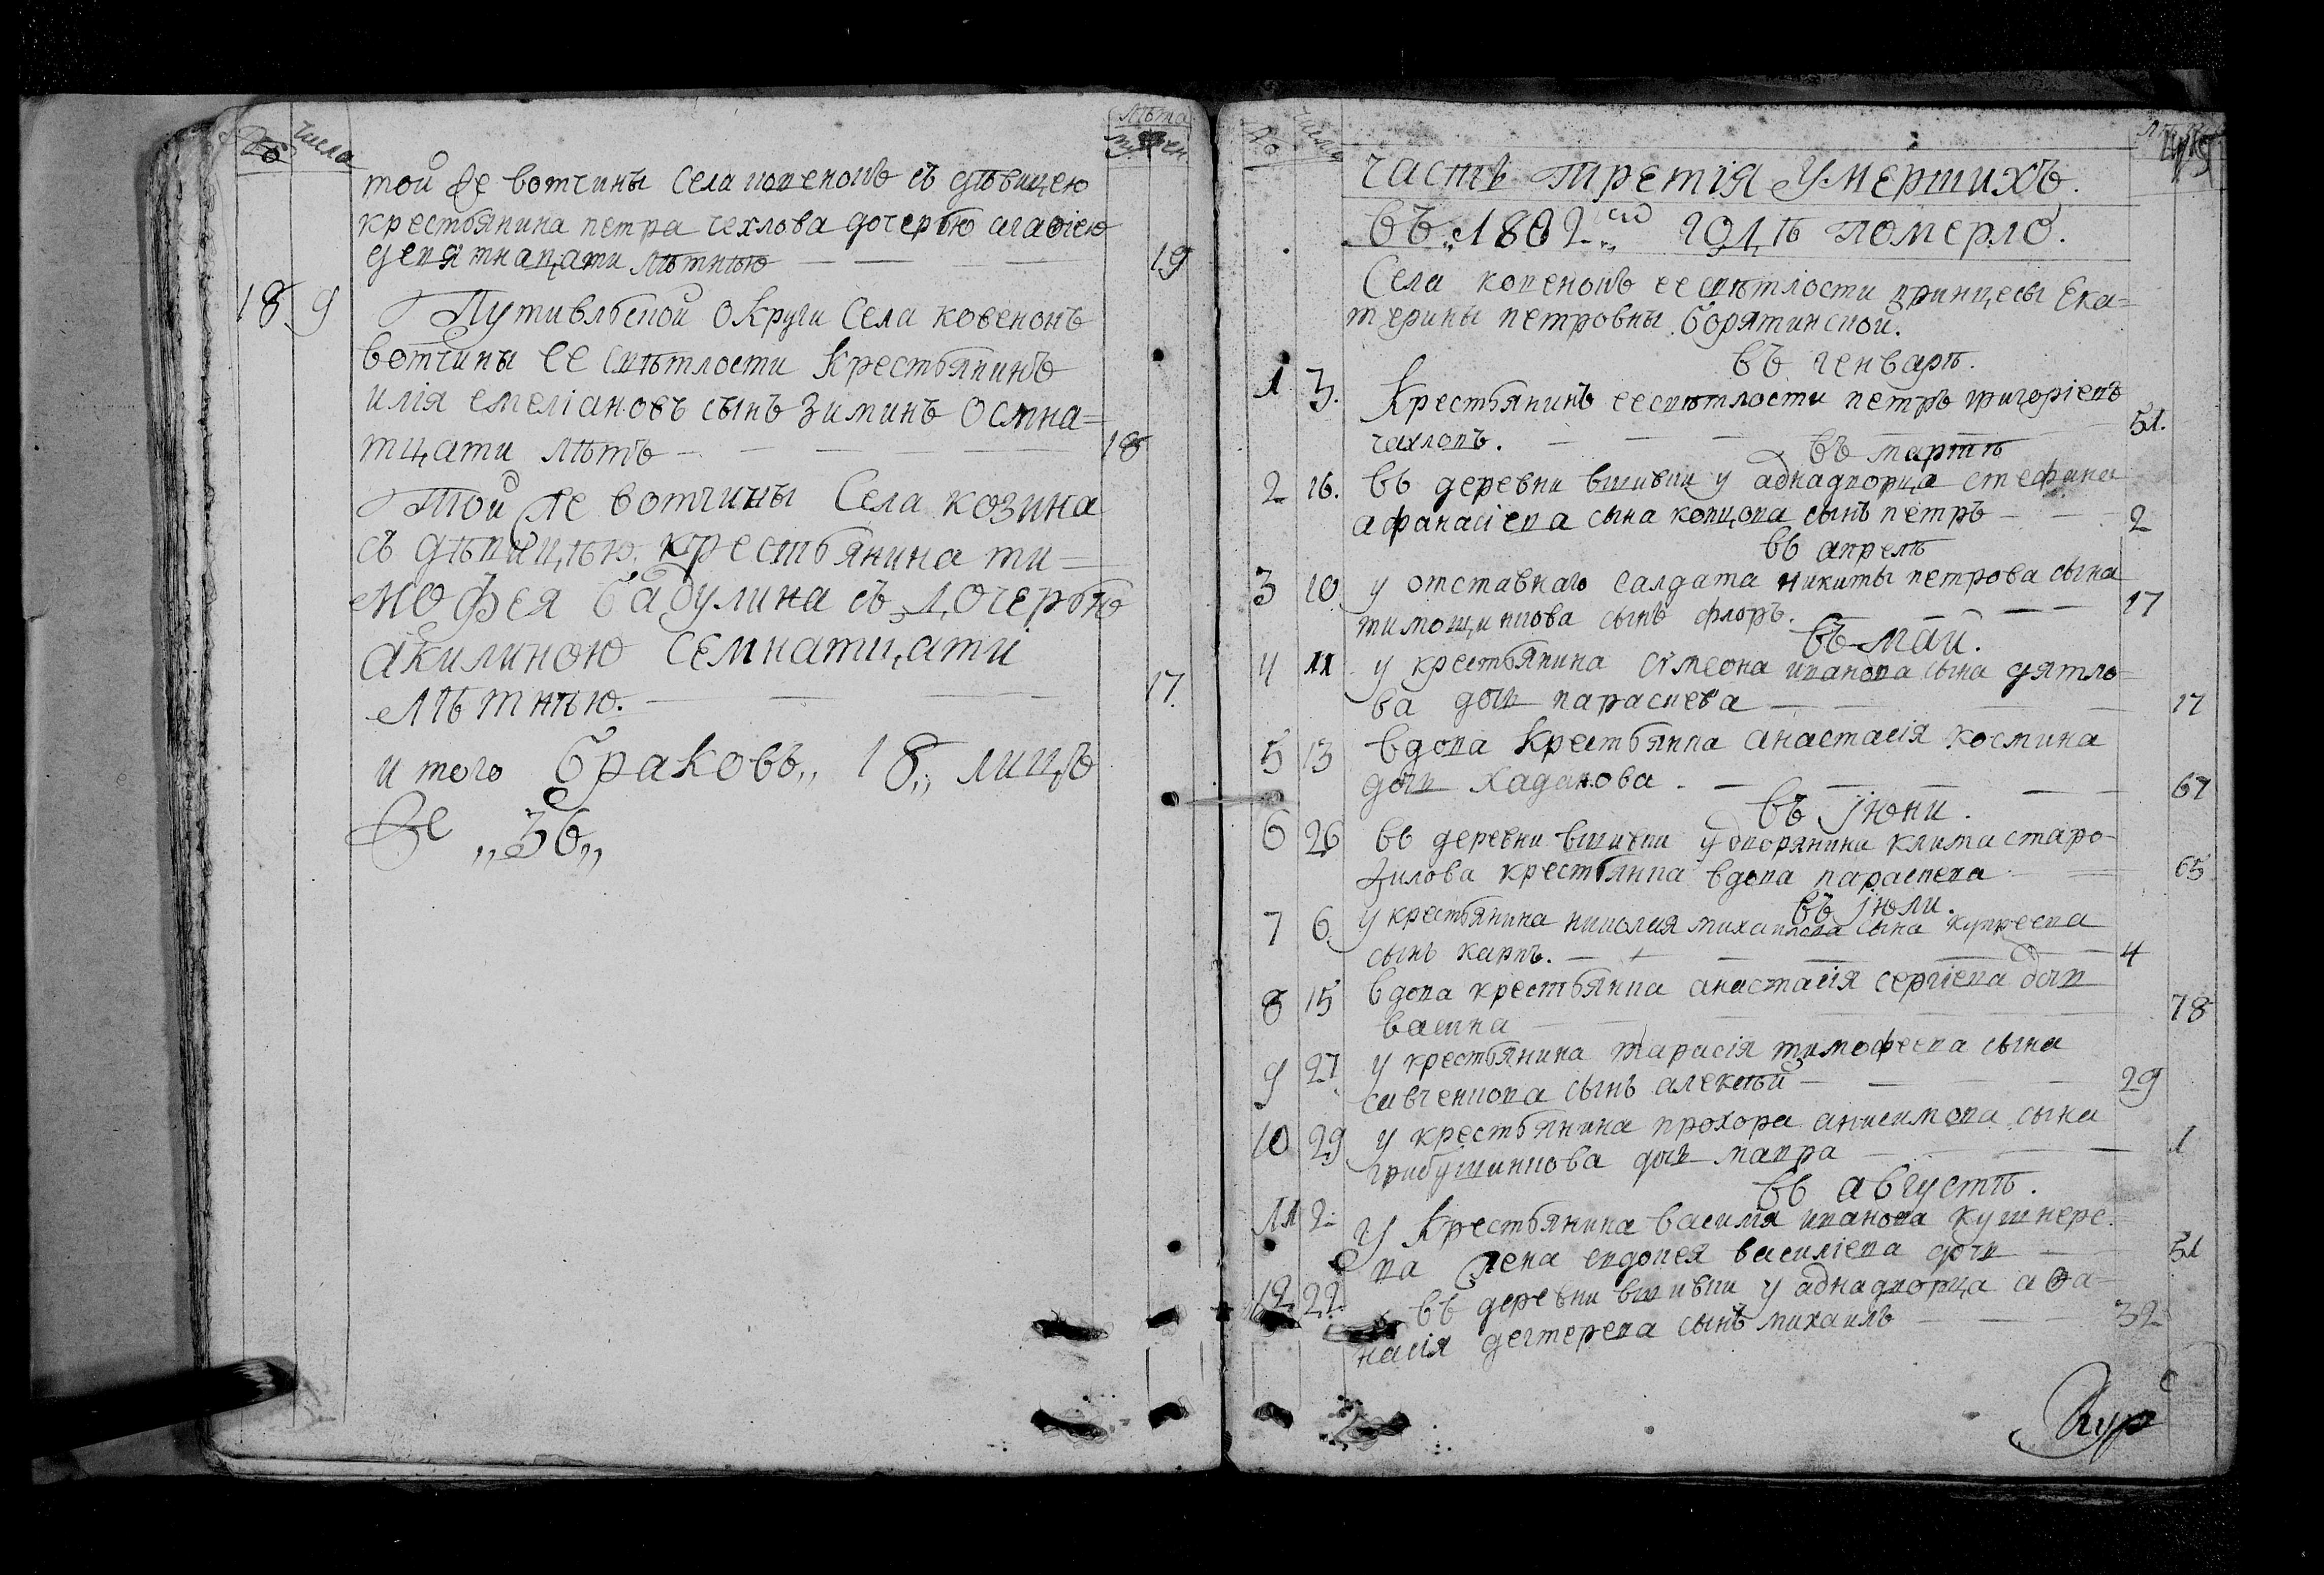 №
числа
Лѣта
муж
жен
той же вотчины села ковенокъ съ дѣвицею
крестьянина петра чехлова дочерью агаѳіею
девятнацати лѣтнѣю
19
18 9 Путивльской округи села ковенокъ
вотчины ее свѣтлости крестьянинъ
илія емеліановъ сынъ зиминъ осмна=
тцати лѣтъ
18
той же вотчины села козина
съ дѣвицѣю крестьянина ти=
мофея бабулина съ дочерью
акилиною семнатцати
лѣтнѣю.
17.
и того браковъ „ 18 „ лицъ
же „ 36 „
№
числа
часть третія умершихъ.
въ „ 1802 „ мъ годѣ померло.
Села ковенокъ ее свѣтлости принцесы Ека=
терины петровны борятинской.
въ генварѣ.
1. 3. Крестьянинъ ее свѣтлости петръ григоріевъ
чахловъ.
51.
въ мартѣ
2 16. въ деревни вшивки у аднадворца стефана
афанасіева сына копцова сынъ петръ
2
въ апрелѣ
3 10 у отставнаго салдата никиты петрова сына
тимощинкова сынъ флоръ.
17
въ маи.
4 11 у крестьянина сѵмеона иванова сына дятло=
ва дочь параскева
17
5 13 вдова крестьянка анастасія космина
дочь хадакова.
67
въ іюни.
6 26 въ деревни вшивки у дворянина клима старо-
жилова крестьянка вдова параскева
65
въ іюли.
7 6. у крестьянина николая михаилова сына купреева
сынъ карпъ.
4
8 15 вдова крестьянка анастасія сергіева дочь
васина
78
9 27 у крестьянина тарасія тимофеева сына
савченкова сынъ алексѣй
29
10 29 у крестьянина прохора анисимова сына
грибушинкова дочь мавра
1
въ августѣ.
11 2. у крестьянина василія иванова кушнере=
ва жена евдокея василіева дочь
51
12 22. въ деревни вшивки у аднадворца аѳа=
насія дегтерева сынъ михаилъ
32
Кур